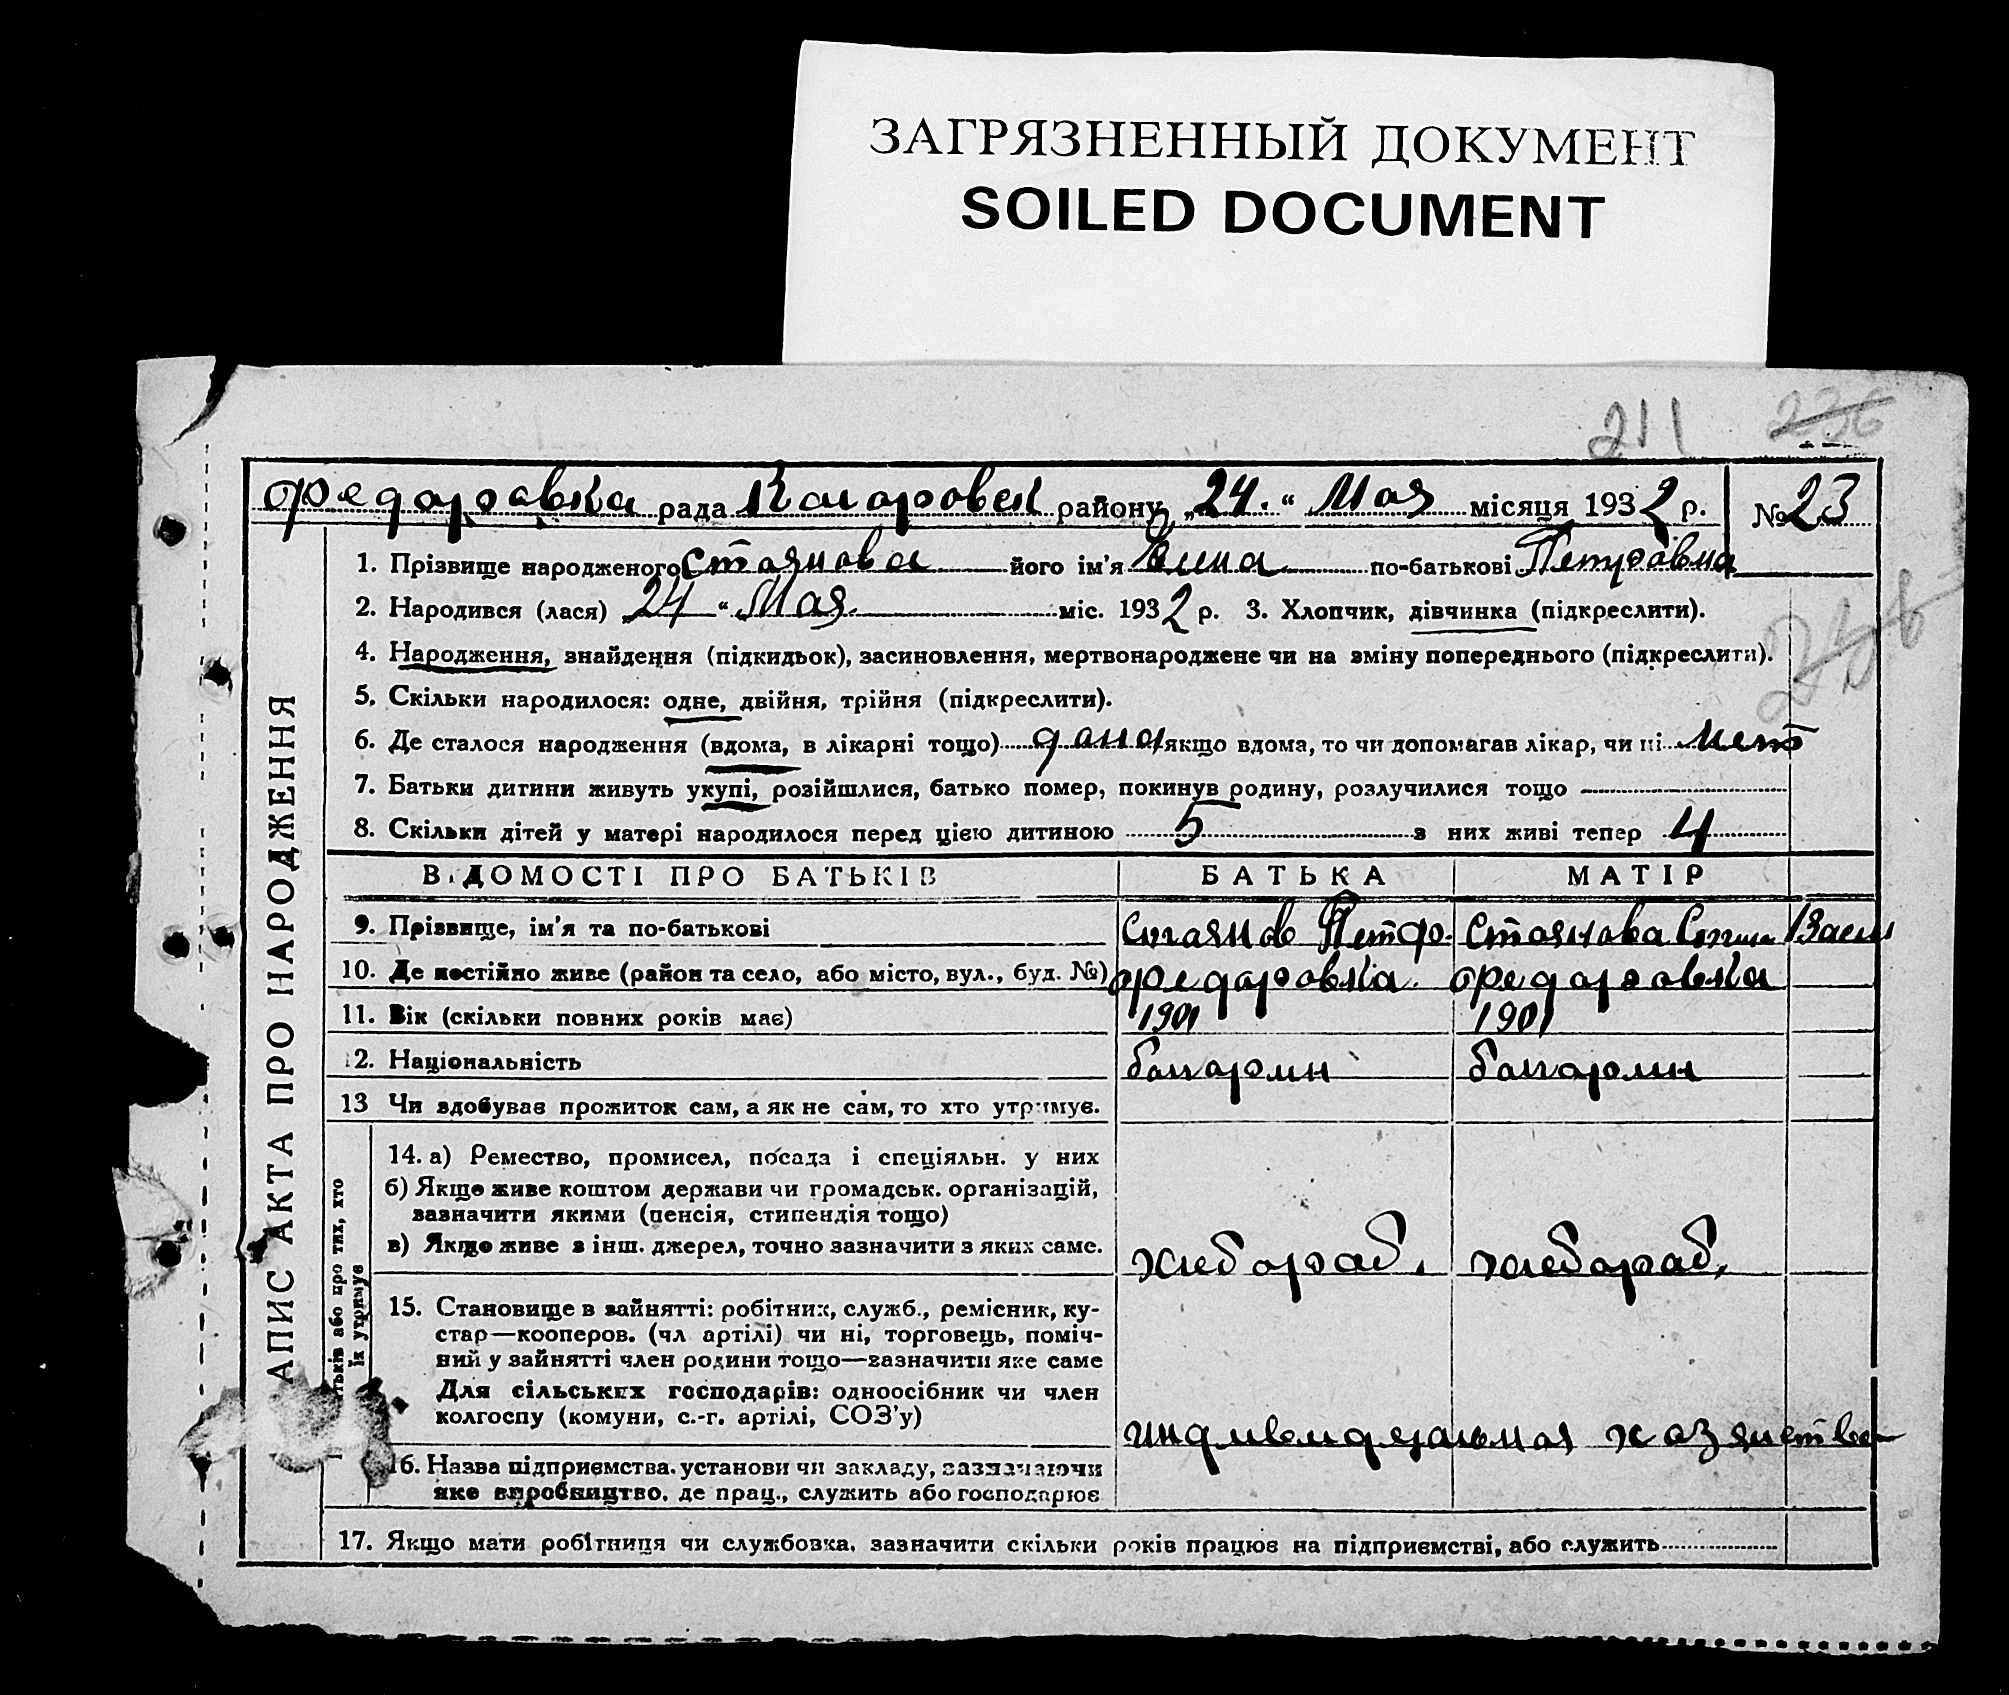 ЗАГРЯЗНЕННЫЙ ДОКУМЕНТ
SOILED DOCUMENT
211 236
Федаровка рада района „24." Мая місяця 1932 р. № 23
АПИС АКТА ПРО НАРОДЖЕННЯ
1. Прізвище народженого Стаянова його ім'я по-батькові Петровна
2. Народився (лася) „24" Мая міс. 1932 р. 3. Хлопчик, дівчинка (підкреслити).
4. Народження, знайдення (підкидьок), засиновлення, мертвонароджене чи на зміну попереднього (підкреслити).
5. Скільки народилося: одне, двійня, трійня (підкреслити).
6. Де сталося народження (вдома, в лікарні тощо) дома якщо вдома, то чи допомагав лікар, чи ні нет
7. Батьки дитини живуть укупі, розійшлися, батько помер, покинув родину, розлучилися тощо
8. Скільки дітей у матері народилося перед цією дитиною 5 з них живі тепер 4
ВІДОМОСТІ ПРО БАТЬКІВ БАТЬКА МАТІР
9. Прізвище, ім'я та по-батькові Стаянов Петр. Стаянова Васил
10. Де постійно живе (район та село, або місто, вул., буд. №) Федаровка Федаровка
11. Вік (скільки повних років має) 1901 1901
12. Національність балгарин балгарин
13 Чи здобував прожиток сам, а як не сам, то хто утримує.
тьків або про тих, хто
їх утримує
14. а) Ремество, промисел, посада і спеціяльн. у них
б) Якщо живе коштом держави чи громадськ. організацій,
зазначити якими (пенсія, стипендія тощо)
в) Якщо живе з інш. джерел, точно зазначити з яких саме. хлебараб. хлебараб.
15. Становище в зайнятті: робітник, служб., ремісник, ку-
стар—кооперов. (чл артілі) чи ні, торговець, поміч-
ний у зайнятті член родини тощо—зазначити яке саме
Для сільських господарів: одноосібник чи член
колгоспу (комуни, с.-г. артілі, СОЗ'у) индивидуальная
16. Назва підприємства, установи чи закладу, зазначаючи
яке виробництво, де прац., служить або господарює
17. Якщо мати робітниця чи службовка, зазначити скільки років працює на підприємстві, або служить